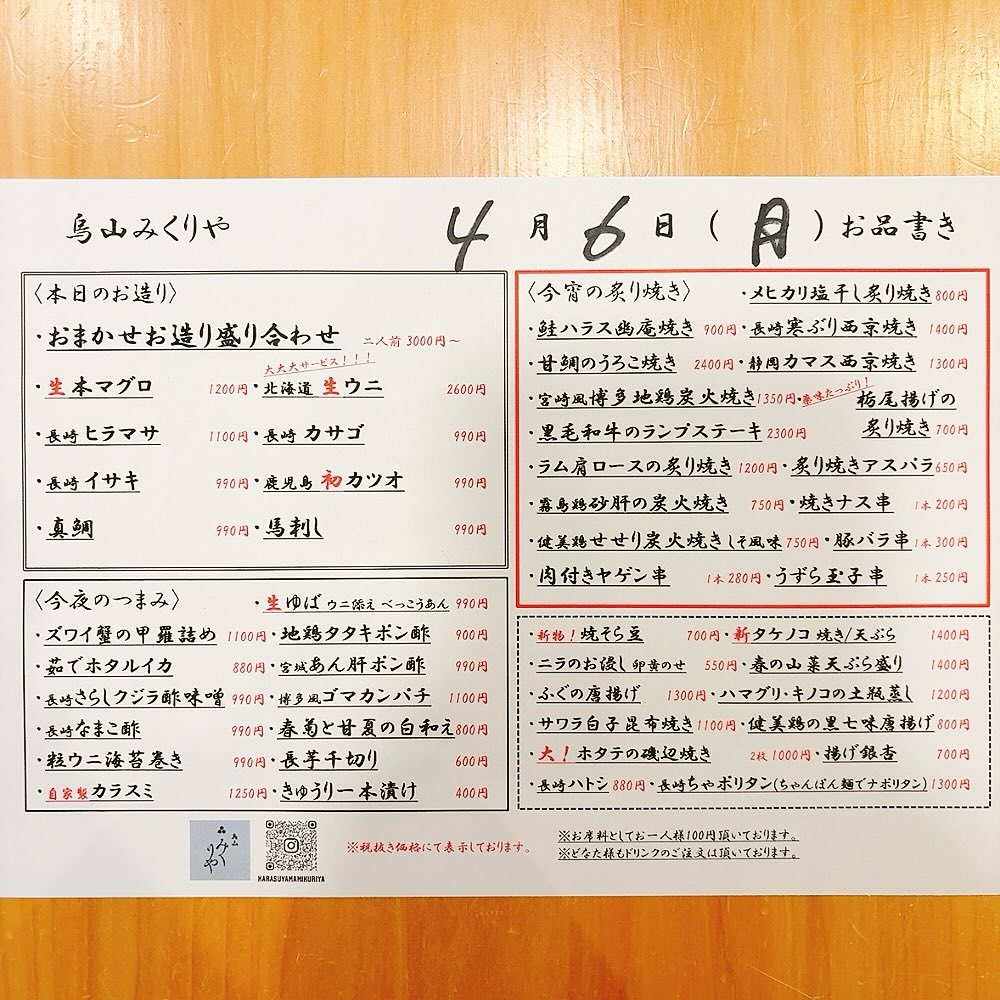 烏山みくりや 4月6日(月)お品書き
〈本日のお造り〉
・おまかせお造り盛り合わせ 二人前 3000円〜
大大大サービス!!!
・生本マグロ 1200円・北海道 生ウニ 2600円
・長崎 ヒラマサ 1100円・長崎 カサゴ 990円
・長崎 イサキ 990円・鹿児島 初カツオ 990円
・真鯛 990円・馬刺し 990円
〈今夜のつまみ〉 ・生ゆば ウニ添え べっこうあん 990円
・ズワイ蟹の甲羅詰め 1100円・地鶏タタキポン酢 900円
・茹でホタルイカ 880円・宮城あん肝ポン酢 990円
・長崎さらしクジラ酢味噌 990円・博多風ゴマカンパチ 1100円
・長崎なまこ酢 990円・春菊と甘夏の白和え 800円
・粒ウニ海苔巻き 990円・長芋千切り 600円
・自家製カラスミ 1250円・きゅうり一本漬け 400円
〈今宵の炙り焼き〉 ・メヒカリ塩干し炙り焼き 800円
・鮭ハラス幽庵焼き 900円・長崎寒ぶり西京焼き 1400円
・甘鯛のうろこ焼き 2400円・静岡カマス西京焼き 1300円
・宮崎風博多地鶏炭火焼き 1350円・薬味たっぷり! 栃尾揚げの
・黒毛和牛のランプステーキ 2300円 炙り焼き 700円
・ラム肩ロースの炙り焼き 1200円・炙り焼きアスパラ 650円
・霧島鶏砂肝の炭火焼き 750円・焼きナス串 1本 200円
・健美鶏せせり炭火焼き しそ風味 750円・豚バラ串 1本 300円
・肉付きヤゲン串 1本 280円・うずら玉子串 1本 250円
・新物!焼そら豆 700円・新タケノコ 焼き/天ぷら 1400円
・ニラのお浸し 卵黄のせ 550円・春の山菜天ぷら盛り 1400円
・ふぐの唐揚げ 1300円・ハマグリ・キノコの土瓶蒸し 1200円
・サワラ白子昆布焼き 1100円・健美鶏の黒七味唐揚げ 800円
・大!ホタテの磯辺焼き 2枚 1000円・揚げ銀杏 700円
・長崎ハトシ 880円・長崎ちゃポリタン(ちゃんぽん麺でナポリタン) 1300円
みくりや
KARASUYAMAMIKURIYA
※税抜き価格にて表示しております。
※お席料としてお一人様100円頂いております。
※どなた様もドリンクのご注文は頂いております。